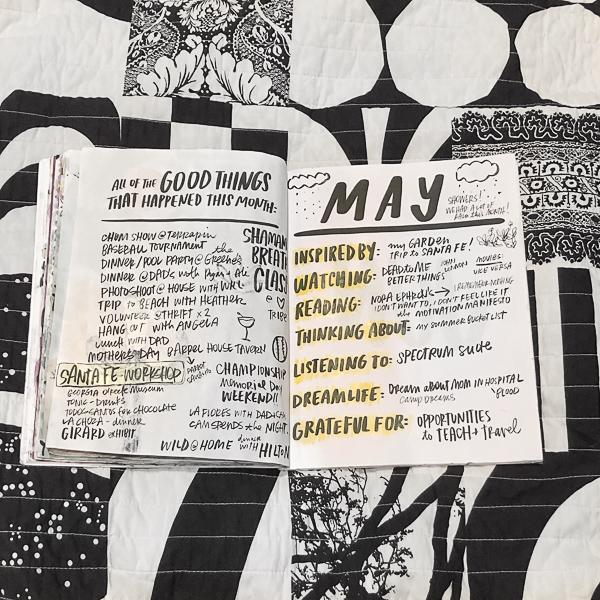 ALL OF THE GOOD THINGS
THAT HAPPENED THIS MONTH:
CHOM SHOW @ Terrapin
BASEBALL TOURNAMENT
DINNER/POOL PARTY @ the Greene's
DINNER @ DADS with
PHOTOSHOOT @ HOUSE with
TRIP to BEACH with HEATHER
VOLUNTEER @ THRIFT x 2
HANG OUT with ANGELA
Lunch with DAD
MOTHER'S DAY @ BARREL HOUSE TAVERN!
SHAMANIC
BREATH
CLASS
@
TRIBE
SANTA FE WORKSHOP
GEORGIA O'Keefe MUSEUM
TONIC - DRINKS
TODOS SANTOS for CHOCOLATE
LA CHOZA - dinner
GIRARD exHIBIT
CHAMPIONSHIP
Memorial Day
WEEKEND!!
LA FLORES with DAD +
CAM SPENDS the NIGHT
WILD @ HOME
dinner with HILTON
MAY
SHOWERS!
WE HAD A LOT OF
RAIN this MONTH!
INSPIRED BY: my GARDEN
TRIP to SANTA FE!
WATCHING: DEAD to ME
BETTER THINGS
JOHN LENNON
MOVIES:
VICE VERSA
READING: NORA EPHRON'S → I REMEMBER NOTHING
I DON'T WANT TO, I DON'T FEEL LIKE IT
the MOTIVATION MANIFESTO
THINKING ABOUT: my SUMMER BUCKET LIST
LISTENING TO: SPECTRUM SUITE
DREAM LIFE: Dream about MOM IN HOSPITAL
CAMP DREAMS
BLOOD
GRATEFUL FOR: OPPORTUNITIES
to TEACH + travel